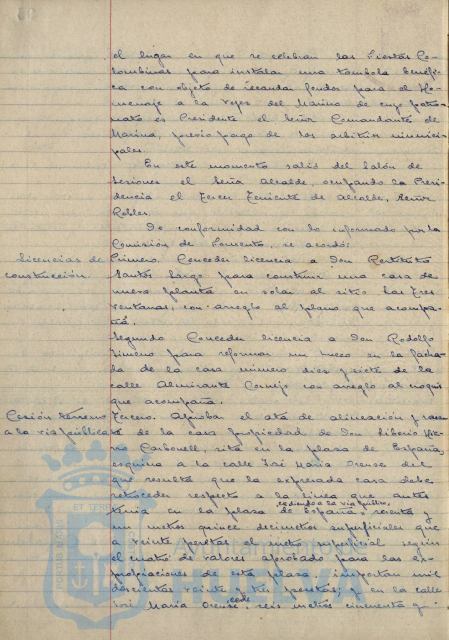 el lugar en que se celebran las Fiestas Co-
lombinas para instalar una tombola benefi-
ca con objeto de recaudar fondos para el Ho-
menaje a la Vejez del Marino de cuyo patro-
nato es Presidente el Señor Comandante de
Marina, previo pago de los arbitrios munici-
pales.
En este momento salió del Salón de
Sesiones el Señor Alcalde, ocupando la Presi-
dencia el Tercer Teniente de Alcalde, Señor
Robles.
De conformidad con lo informado por la
Comisión de Fomento, se acordó:
Licencias de
construcción.
Primero. Conceder licencia a Don Restituto
Santos para construir una casa de
nueva planta en solar al sitio Las Tres
Ventanas, con arreglo al plano que acompa-
ña.
Segundo Conceder licencia a Don Rodolfo
Jimeno para reformar un hueco en la facha-
da de la casa número diez y siete de la
calle Almirante con arreglo al croquis
que acompaña.
Cesión terreno
a la vía pública
Tercero. Aprobar el acta de alineación y rasan-
te de la casa propiedad de Don Liberio
Carbonell, sita en la plaza de España
esquina a la calle José María Orense del
que resulta que la expresada casa debe
retroceder respecto a la línea que antes
tenia en la plaza de España, cediendo a la vía pública, veinte y
un metros quince decimetros superficiales que
a veinte pesetas el metro superficial según
el cuadro de valores aprobado para las ex-
propiaciones de esta plaza importan mil
doscientas veinte y tres pesetas; y en la calle
José María Orense cede seis metros cincuenta y
AYUNTAMIENTO DE
HUELVA